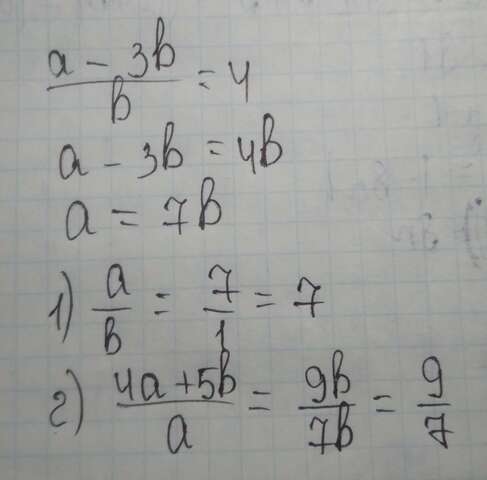 a - 3b / b = 4
a - 3b = 4b
a = 7b
1) a / b = 7 / 1 = 7
2) 4a + 5b / a = 9b / 7b = 9 / 7